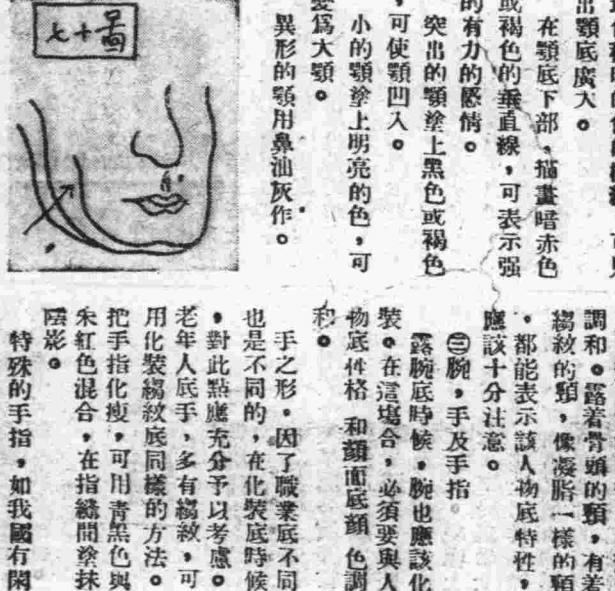 出顎底廣大。
在顎底下部、描畫暗赤色
或褐色的垂直線，可表示强
的有力的感情。
突出的顎塗上黑色或褐色
，可使顎凹入。
小的顎塗上明亮的色，可
變爲大顎。
異形的顎用鼻油灰作。
七十圖
調和。露着骨頭的頸，有着
縐紋的頸，像凝脂一樣的頸
，都能表示該人物底特性，
應該十分注意。
㊂腕，手及手指
露腕底時候，腕也應該化
裝。在這塲合，必須要與人
物底性格 和顏面底顏 色調
和。
手之形，因了職業底不同
也是不同的，在化裝底時候
，對此點應充分予以考慮。
老年人底手，多有縐紋，可
用化裝縐紋底同樣的方法。
把手指化瘦，可用青黑色與
朱紅色混合，在指縫間塗抹
陰影。
特殊的手指，如我國有閑